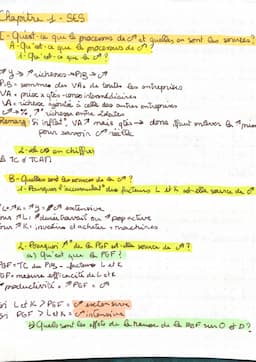 Chapitre 1 - SES
I - Qu'est-ce que le processus de c° et quelles en sont les sources?
A - Qu'est-ce que le processus de c°?
1 - Qu'est-ce que la c°?
↗ y → ↗ richesses → PIB → c°
PIB = sommes des VA de toutes les entreprises
VA = prix x qtés - conso intermédiaires
VA = richesse ajoutée à celle des autres entreprises
c° → %, ↗ richesses entre 2 dates
Remarq : Si inflat°, VA ↗ mais qtés → donc faut enlever la ↗ prix
pour savoir c° réelle
2 - La c° en chiffres
TC et TCAM
B - Quelles sont les sources de la c°?
1 - Pourquoi l'accumulat° des facteurs L et K est-elle source de c°
↗L + ↗K = ↗y = c° extensive
Pour ↗L : durée travail ou ↗ pop active
Pour ↗K : investir et acheter + machines
2 - Pourquoi ↗ de la PGF est-elle source de c°?
a) Qu'est que la PGF?
PGF = TC du PIB - facteurs L et K
PGF = mesure efficacité de L et K
↗ productivité = ↗ PGF = c°
Si L et K > PGF = c° extensive
Si PGF > L et K = c° intensive
b) Quels sont les effets de la hausse de la PGF sur O et D?